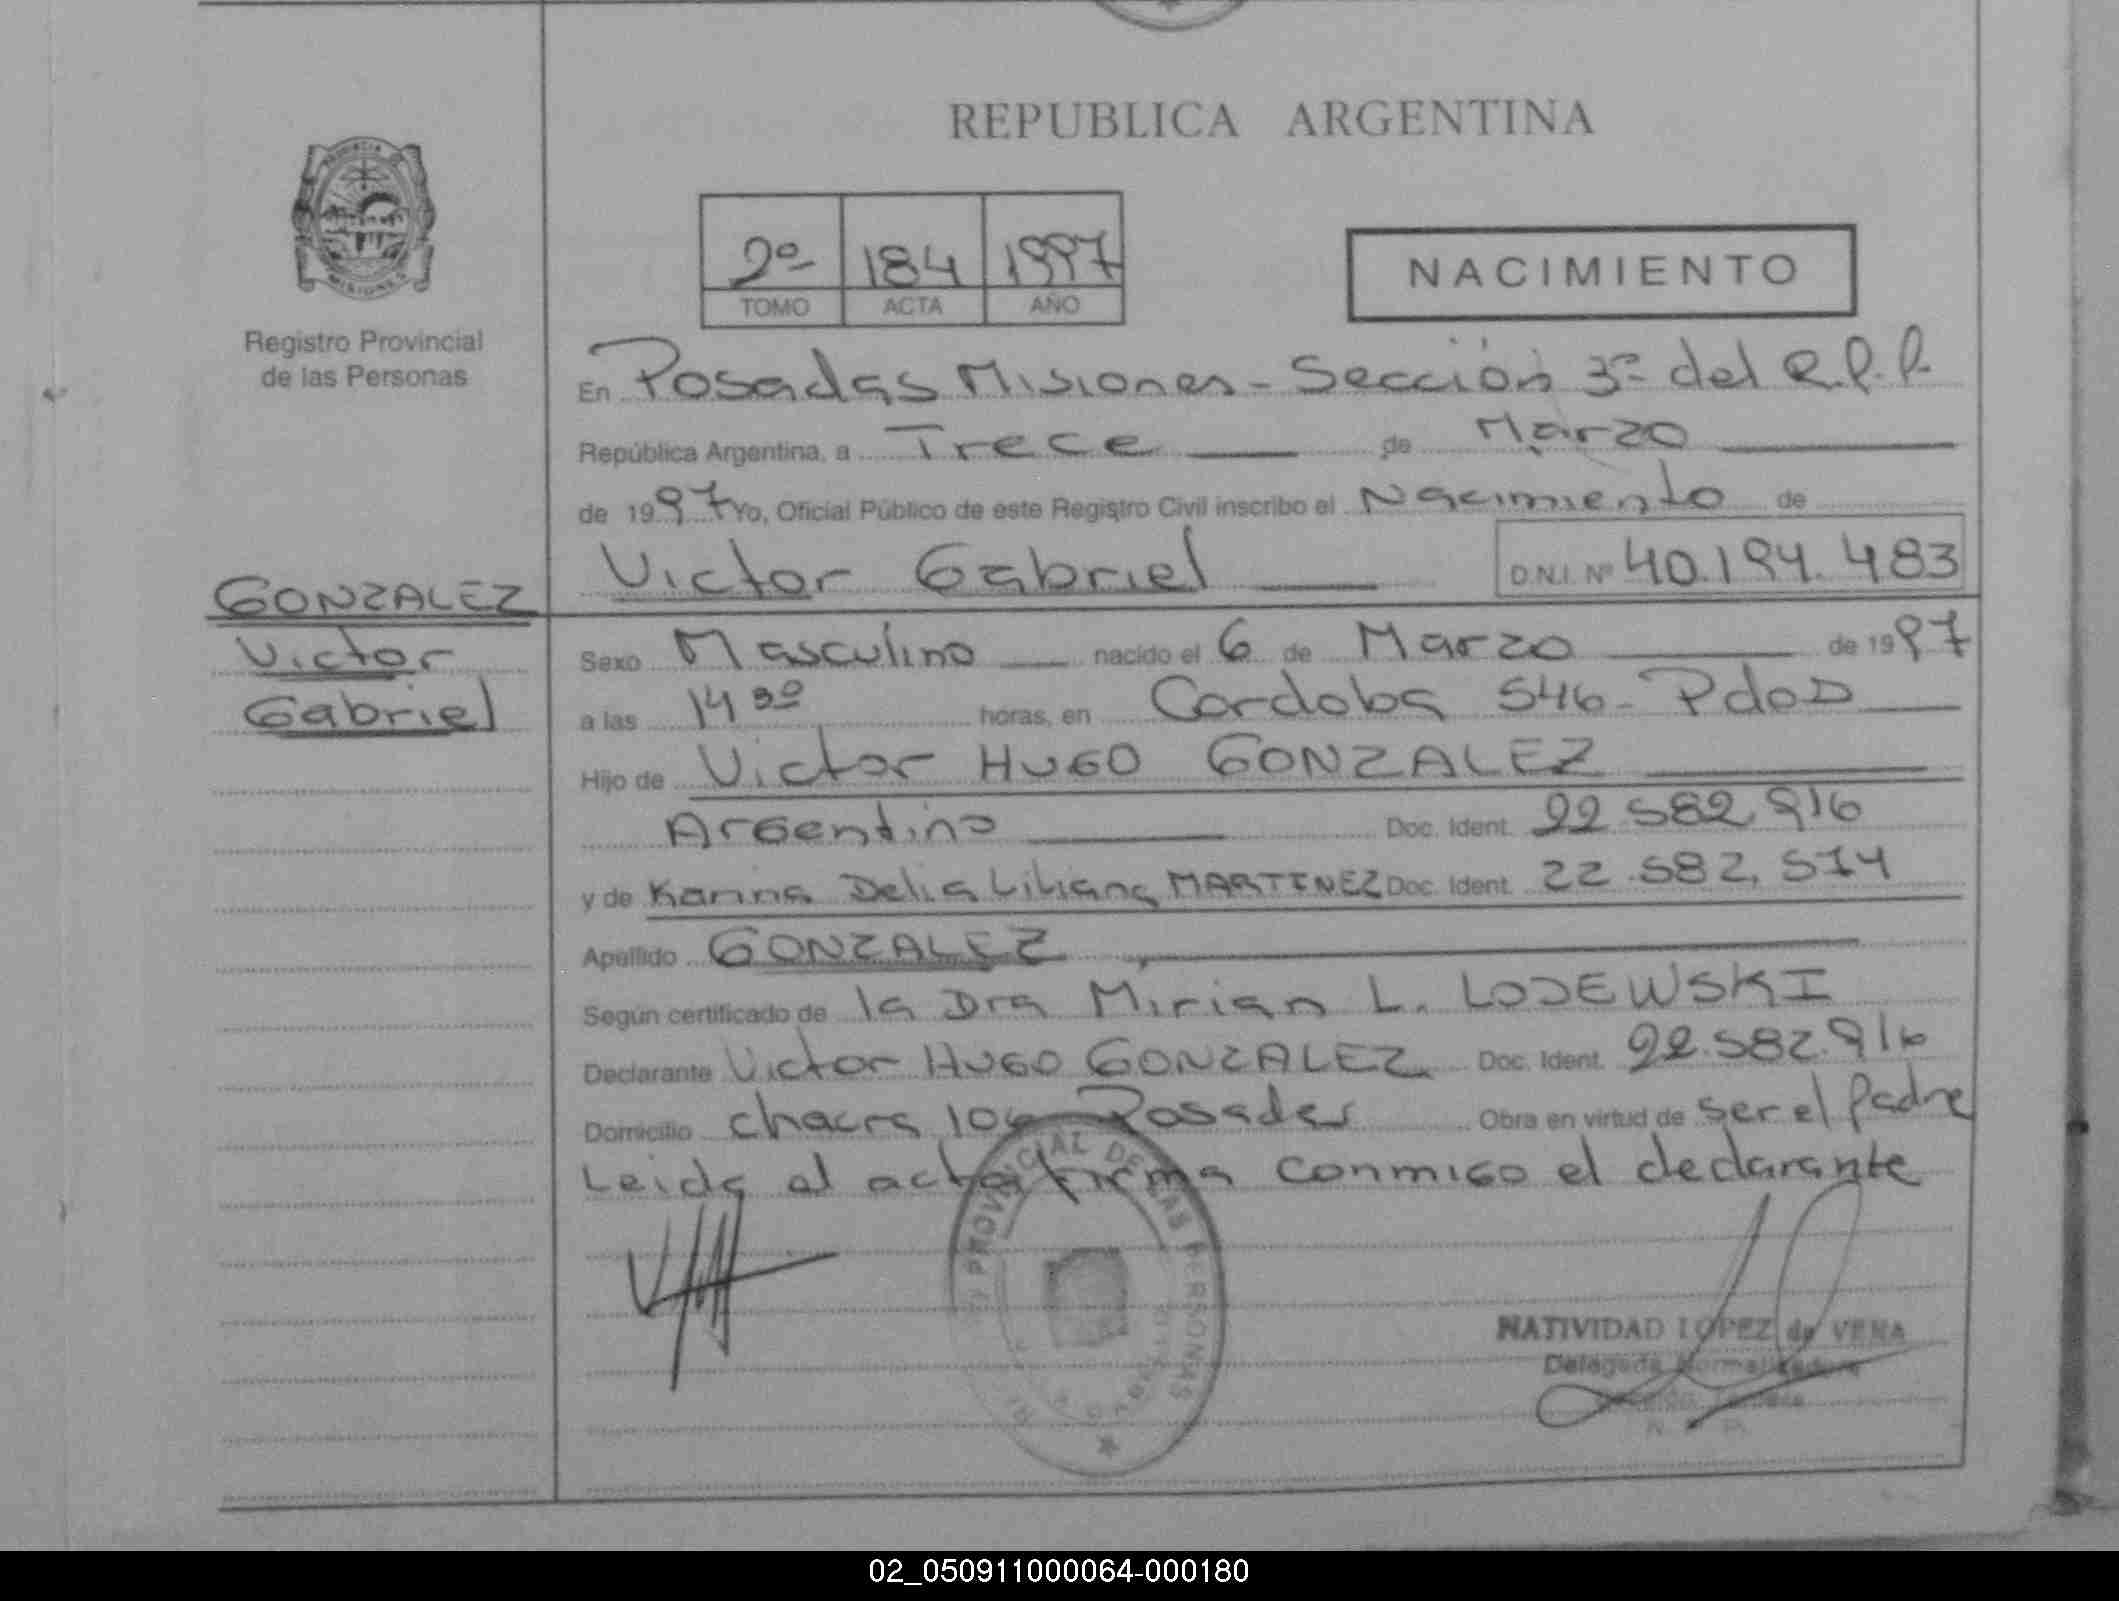 REPUBLICA ARGENTINA
PROVINCIA DE
MISIONES
Registro Provincial
de las Personas
2º 184 1997
TOMO ACTA AÑO
NACIMIENTO
En Posadas Misiones - Sección 3ª del R.P.P.
República Argentina, a Trece de Marzo
de 1997 Yo, Oficial Público de este Registro Civil inscribo el Nacimiento de
Victor Gabriel D.N.I. Nº 40.194.483
GONZALEZ
Victor
Gabriel
Sexo Masculino nacido el 6 de Marzo de 1997
a las 14 30 horas, en Cordoba 546 - PdaD
Hijo de Victor HUGO GONZALEZ
Argentino Doc. Ident. 22.582.916
y de Karina Delia Liliana MARTINEZ Doc. Ident. 22.582.574
Apellido GONZALEZ
Según certificado de la Dra Mirian L. LODEWSKI
Declarante Victor HUGO GONZALEZ Doc. Ident. 22.582.916
Domicilio chacra 106 Posadas Obra en virtud de ser el Padre
Leida el acta firma conmigo el declarante
PROVINCIAL DE LAS PERSONAS
NATIVIDAD LOPEZ de VENA
Delegada Normalizadora
02_050911000064-000180